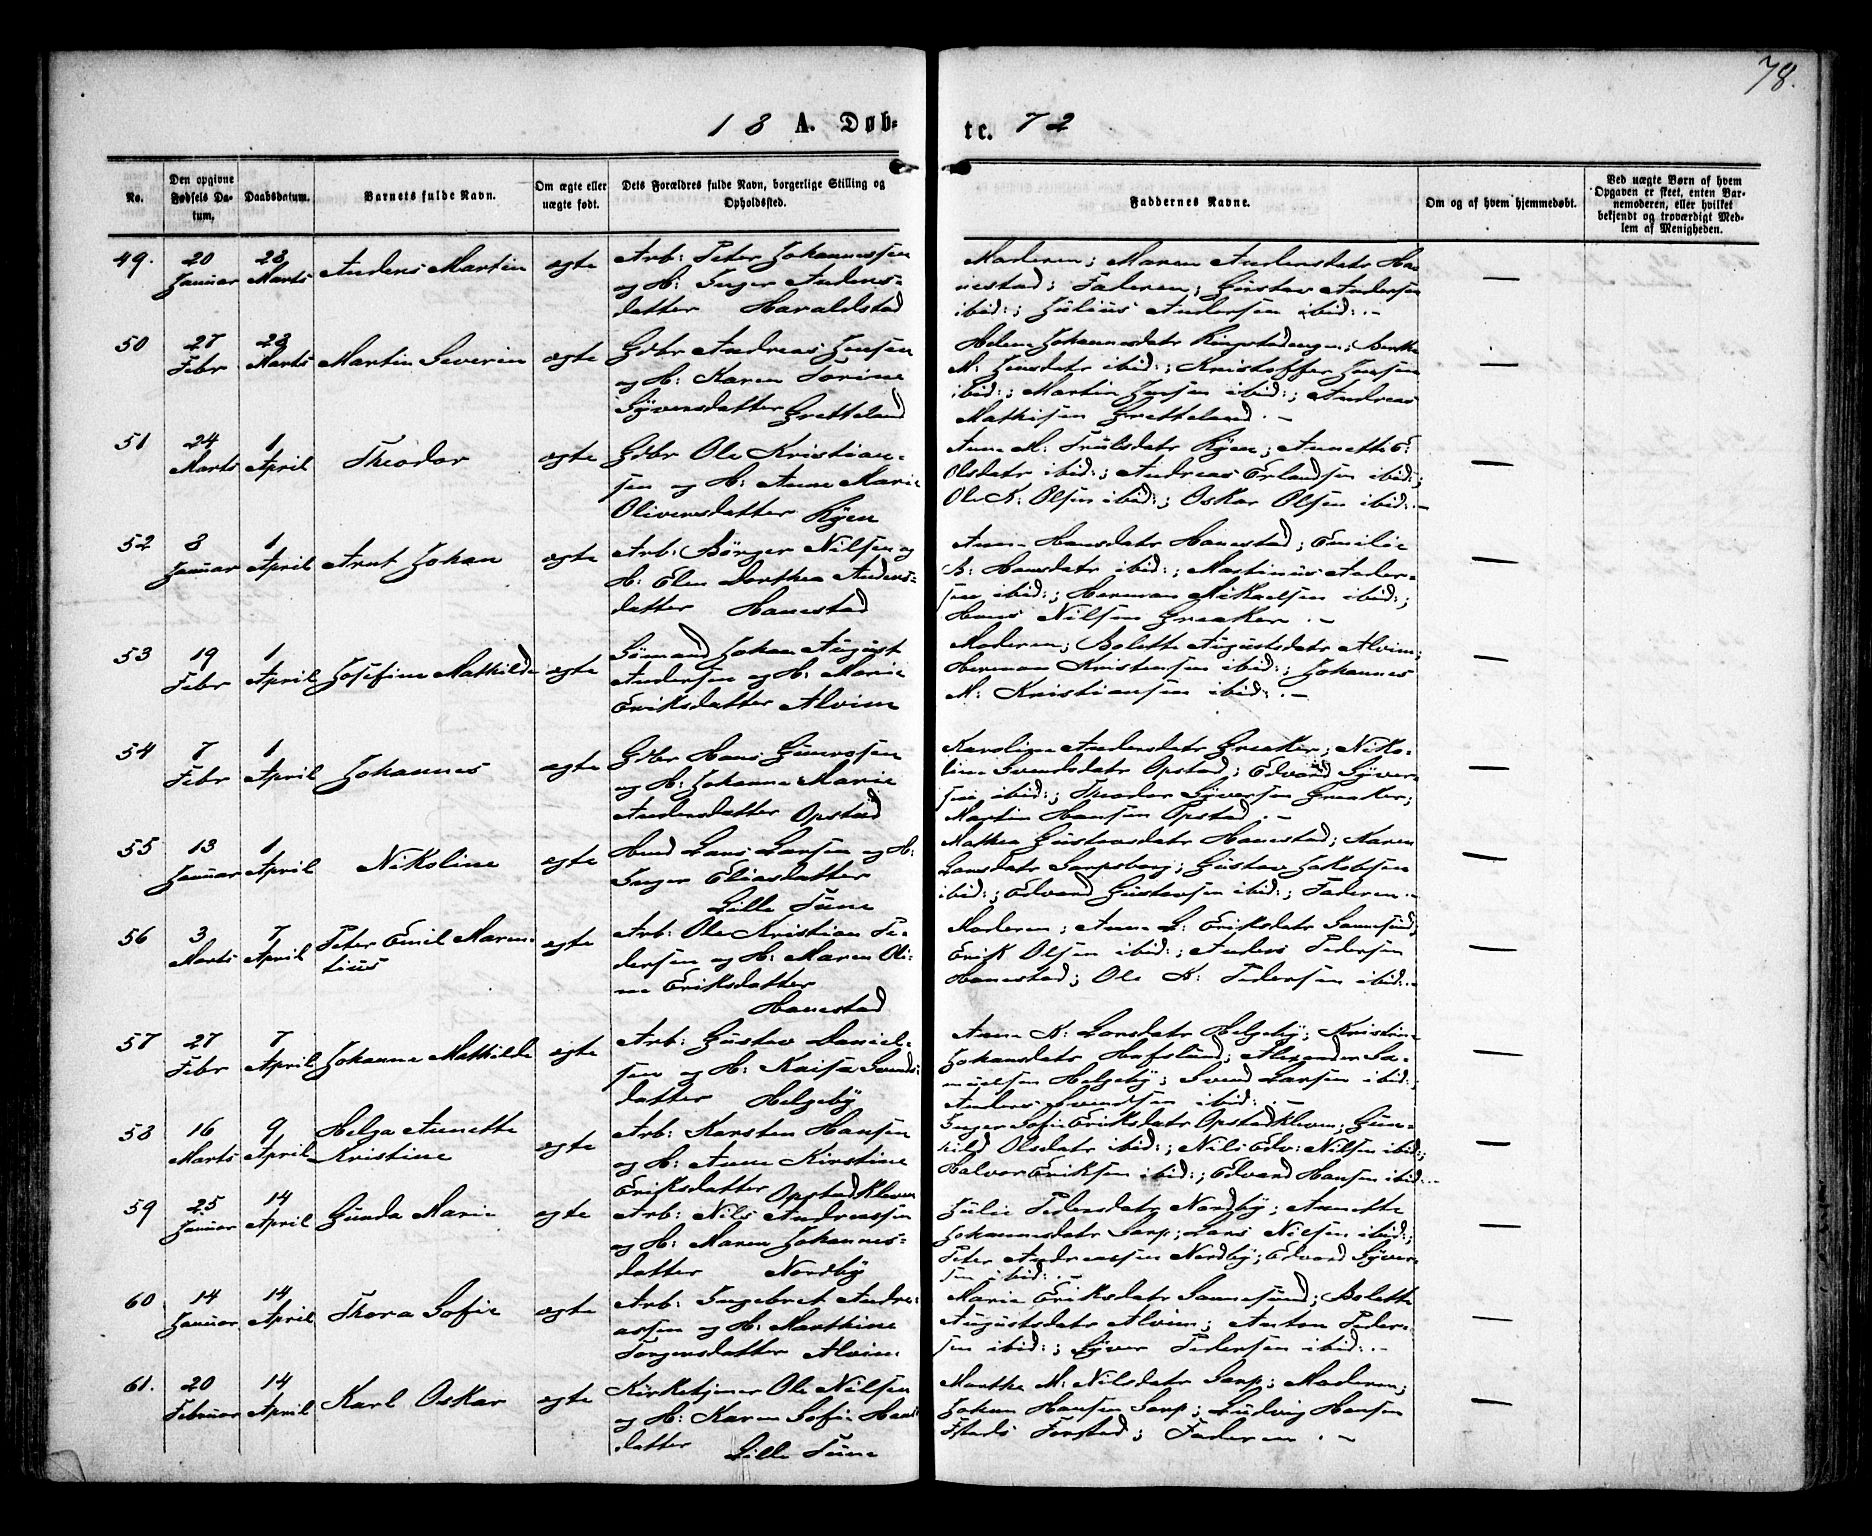 78.
18 A. Døb-
te. 72
No.
Den opgivne
Fødsels Da-
tum.
Daabsdatum.
Barnets fulde Navn.
Om ægte eller
uægte født.
Dets Forældres fulde Navn, borgerlige Stilling og
Opholdssted.
Faddernes Navne.
Om og af hvem hjemmedøbt.
Ved uægte Børn af hvem
Opgaven er skeet, enten Bar-
nemoderen, eller hvilket
bekjendt og troværdigt Med-
lem af Menigheden.
49.
20
Januar
28
Marts
Anders Martin
ægte
Arb: Peter Johannessen
og H: Inger Anders-
datter Haraldstad
Moderen; Maren Andersdatr Ha-
nestad; Faderen; Gustav Andersen
ibid:; Julius Andersen ibid:.-
—
50
27
Febr
28
Marts
Martin Severin
ægte
Gdbr Andreas Jensen
og H: Karen Torine
Syversdatter Gretteland
Helene Johannesdatr Ringstadengen; Berthe
M: Jensdatr ibid:; Kristoffer Jensen
ibid:; Martin Jensen ibid:; Andreas
Mathisen Gretteland.-
—
51
24
Marts
1
April
Theodor
ægte
Gdbr Ole Kristian-
sen og H: Anne Marie
Oliversdatter Ryen
Anne M: Trulsdatr Ryen; Annette E:
Olsdatr ibid:; Andreas Erlandsen ibid:;
Ole K: Olsen ibid:; Oskar Olsen ibid:.-
—
52
8
Januar
1
April
Arnt Johan
ægte
Arb: Børger Nilsen og
H: Elen Dorthea Anders-
datter Hanestad
Anne Hansdatr Hanestad; Emilie
B: Hansdatr ibid:; Martinius Ander-
sen ibid:; Herman Mikaelsen ibid:;
Hans Nilsen Greaker.-
—
53
19
Febr
1
April
Josefine Mathilde
ægte
Sømand Johan August
Andersen og H: Marie
Eriksdatter Alvim
Moderen; Bolette Augustsdatr Alvim;
Herman Kristensen ibid:; Johannes
M: Kristiansen ibid:.-
—
54
7
Febr
1
April
Johannes
ægte
Gdbr Hans Gunerssen
og H: Johanne Marie
Andersdatter Opstad
Karoline Andersdatr Greaker; Niko-
line Svendsdatr Opstad; Edvard Syver-
sen ibid:; Theodor Syversen Greaker;
Martin Hansen Opstad.-
—
55
13
Januar
1
April
Nikoline
ægte
Hmd Lars Larsen og H:
Inger Eliasdatter
Lille Tune
Mathea Gustavsdatr Hanestad; Karen
Larsdatr Sarpsborg; Gustav Jakobsen
ibid:; Edvard Gustavsen ibid:; Faderen.-
—
56
3
Marts
7
April
Peter Emil Maren-
tius
ægte
Arb: Ole Kristian Pe-
dersen og H: Maren Oli-
ne Eriksdatter
Hanestad
Moderen; Anne L: Eriksdatr Sannesund;
Erik Olsen ibid:; Anders Pedersen
Hanestad; Ole K: Pedersen ibid:.-
—
57
27
Febr
7
April
Johanne Mathilde
ægte
Arb: Gustav Daniel-
sen og H: Kaisa Svends-
datter Helgeby
Anne K: Larsdatr Helgeby; Kristine
Johansdatr Hafslund; Alexander Sa-
muelsen Helgeby; Svend Larsen ibid:;
Anders Svendsen ibid:.-
—
58
16
Marts
9
April
Helga Annette
Kristine
ægte
Arb: Karsten Hansen
og H: Anne Kirstine
Eriksdatter Opstadkleven
Inger Sofie Eriksdatr Opstadkleven; Gun-
hild Olsdatr ibid:; Nils Edv: Nilsen ibid:;
Halvor Eriksen ibid:; Edvard Hansen ibid:.-
—
59
25
Januar
14
April
Gunda Marie
ægte
Arb: Nils Andreassen
og H: Maren Johannes-
datter Nordby
Julie Pedersdatr Nordby; Annette
Johannesdatr Sarp; Lars Nilsen ibid:;
Peter Andreassen Nordby; Edvard Syver-
sen ibid:.-
—
60
14
Januar
14
April
Thora Sofie
ægte
Arb: Ingebret Andre-
assen og H: Marthine
Torgersdatter Alvim
Marie Eriksdatr Sannesund; Bolette
Augustsdatr Alvim; Anton Peder-
sen ibid:; Syver Pedersen ibid:.-
—
61.
20
Februar
14
April
Karl Oskar
ægte
Kirketjener Ole Nilsen
og H: Karen Sofie Hans-
datter Lille Tune
Marthe M: Nilsdatr Sarp; Moderen;
Johan Hansen Sarp; Ludvig Hansen
Forstad; Faderen.-
—